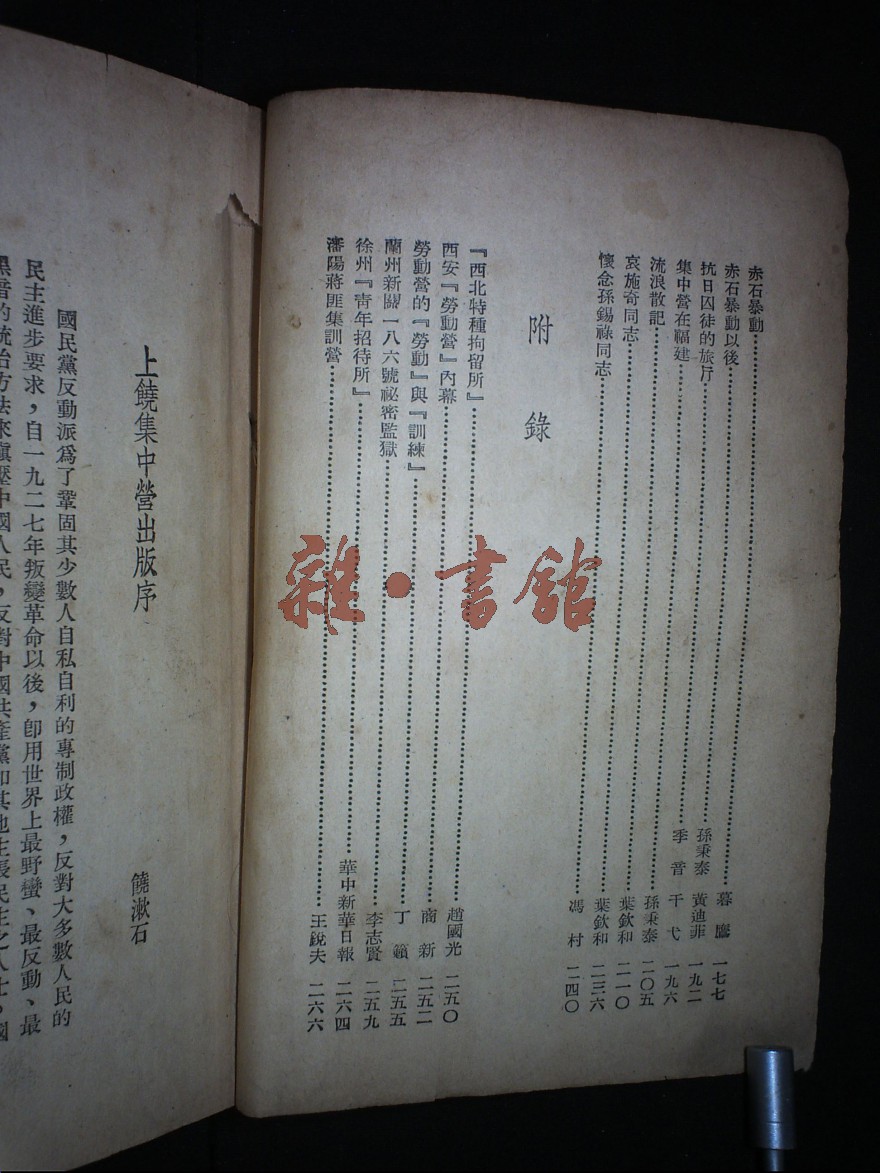 赤石暴動……暮 鷹 一七七
赤石暴動以後……孫秉泰 黃迪菲 一九二
抗日囚徒的旅行……季 音 干 戈 一九六
集中營在福建……孫秉泰 二〇五
流浪散記……葉欽和 二一〇
哀施奇同志……葉欽和 二三六
懷念孫錫祿同志……馮 村 二四〇
附 錄
『西北特種拘留所』……趙國光 二五〇
西安『勞動營』內幕……商 新 二五二
勞動營的『勞動』與『訓練』……丁 籟 二五五
蘭州新關一八六號祕密監獄……李志賢 二五九
徐州『靑年招待所』……華中新華日報 二六四
瀋陽蔣匪集訓營……王銳夫 二六六
雜·書館
上饒集中營出版序
饒漱石
國民黨反動派爲了鞏固其少數人自私自利的專制政權，反對大多數人民的
民主進步要求，自一九二七年叛變革命以後，卽用世界上最野蠻、最反動、最
黑暗的統治方法來鎭壓中國人民，反對中國共產黨和其他主張民主之人士，國